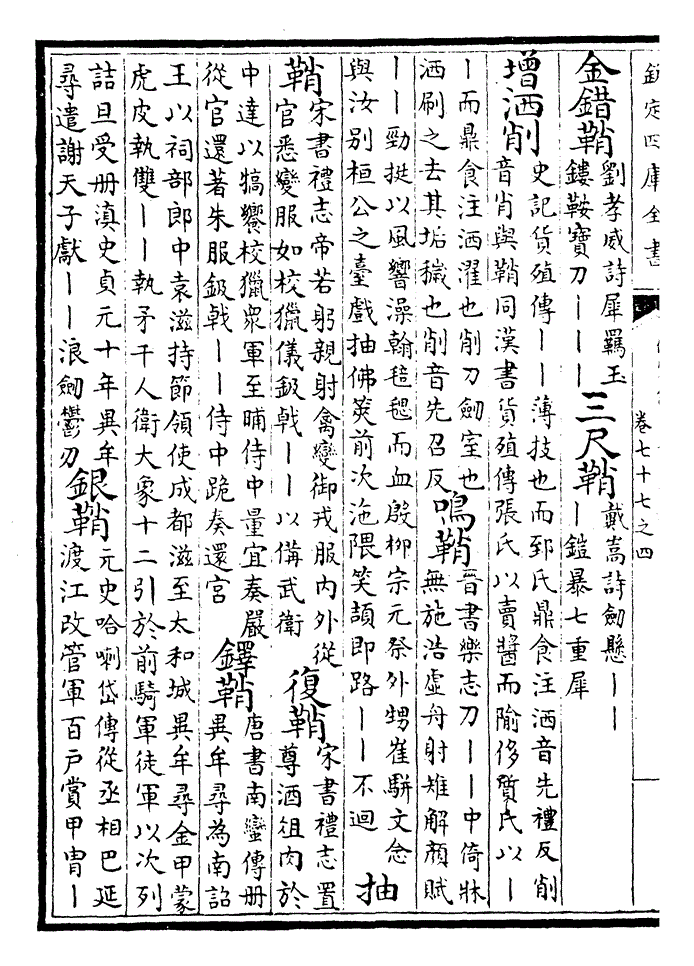 欽定四庫全書
卷七十七之四
金錯鞘
劉孝威詩犀羈玉
鏤鞍寶刀｜｜｜
三尺鞘
戴嵩詩劍懸｜｜
｜鎧暴七重犀
增洒削
史記貨殖傳｜｜薄技也而郅氏鼎食注洒音先禮反削
音肖與鞘同漢書貨殖傳張氏以賣醬而隃侈質氏以｜
｜而鼎食注洒濯也削刀劍室也
洒刷之去其垢穢也削音先召反
鳴鞘
晉書樂志刀｜｜中倚牀
無施浩虛舟射雉解顏賦
｜｜勁挺以風響澡翰毰毸而血殷柳宗元祭外甥崔駢文念
與汝別桓公之臺戲抽佛筴前次沲隈笑頡即路｜｜不迴
抽
鞘
宋書禮志帝若躬親射禽變御戎服內外從
官悉變服如校獵儀鈒戟｜｜以備武衛
復鞘
宋書禮志置
尊酒俎肉於
中達以犒饗校獵眾軍至晡侍中量宜奏嚴
從官還著朱服鈒戟｜｜侍中跪奏還宮
鐸鞘
唐書南蠻傳冊
異牟尋為南詔
王以祠部郎中袁滋持節領使成都滋至太和城異牟尋金甲蒙
虎皮執雙｜｜執矛千人衛大象十二引於前騎軍徒軍以次列
詰旦受冊滇史貞元十年異牟
尋遣謝天子獻｜｜浪劍鬱刀
銀鞘
元史哈喇岱傳從丞相巴延
渡江改管軍百戶賞甲冑｜